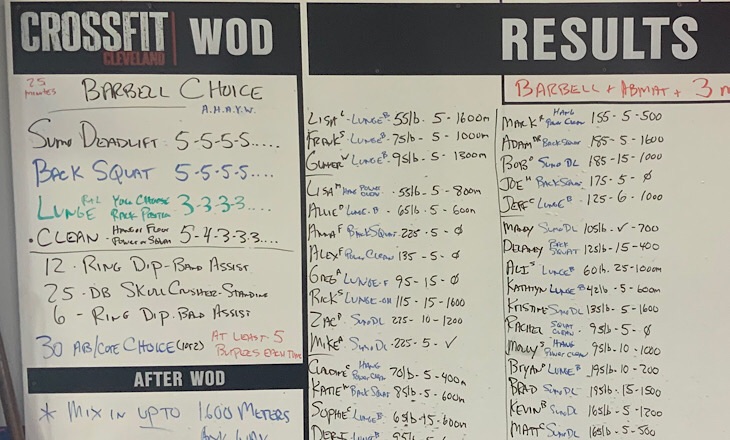 CROSSFIT
CLEVELAND
WOD
RESULTS
25 minutes
BARBELL CHOICE
A.H.A.Y.W.
SUMO DEADLIFT 5-5-5-5.....
BACK SQUAT 5-5-5-5.....
LUNGE R+L YOU CHOOSE RACK POSITION 3-3-3-3....
.CLEAN - HANG OR FLOOR POWER OR SQUAT 5-4-3-3-3....
12 - RING DIP-BAND ASSIST
25 - DB SKULLCRUSHER-STANDING
6 - RING DIP-BAND ASSIST
30 AB/CORE CHOICE (1 OR 2) AT LEAST 5 BURPEES EACH TIME
AFTER WOD
* MIX IN UPTO 1600 METERS
ANY WAY
BARBELL + ABMAT + 3
LISA - LUNGE B - 55lb - 5 - 1600m
FRANK S LUNGE B - 75lb - 5 - 1000m
LUNGE B - 95lb - 5 - 1300m
LISA HANG POWER CLEAN - 55lb - 5 - 800m
ALLIE LUNGE B - 65lb - 5 - 600m
ANNA F BACK SQUAT - 225 - 5 - Ø
ALEX F POWER CLEAN 135 - 5 - Ø
GREG LUNGE-F 95 - 15 - Ø
RICK S LUNGE-OH 115 - 15 - 1600
ZAC SUMO DL 275 - 10 - 1200
MIKE SUMO DL - 225 - 5 - ✓
HANG POWER CLEAN 70lb - 5 - 400m
KATIE BACK SQUAT 85lb - 5 - 600m
SOPHIE LUNGE B 65lb - 15 - 600m
LUNGE B
MARK HANG POWER CLEAN 155 - 5 - 500
ADAM BACK SQUAT 185 - 5 - 1600
BOB SUMO DL 185 - 15 - 1000
JOE BACK SQUAT 175 - 5 - Ø
JEFF LUNGE B 125 - 6 - 1000
MANDY SUMO DL 105lb - ✓ - 700
DELANEY BACK SQUAT 125lb - 15 - 400
ALI S LUNGE B 60lb. 25 - 1000m
KATHRYN LUNGE B 42lb - 5 - 600m
KRISTINE SUMO DL 135lb - 5 - 1600
RACHEL SQUAT CLEAN - 95lb - 5 - Ø
MOLLY S HANG POWER CLEAN 95lb - 10 - 1000
BRYAN LUNGE B 195lb - 10 - 200
BRAD SUMO DL 195lb - 15 - 1500
KEVIN SUMO DL 165lb - 5 - 1200
MATT SUMO DL 165lb - 5 - 500